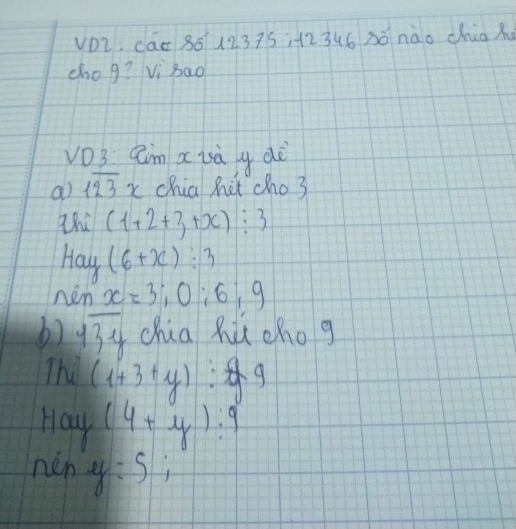 VD2: các số 12375; 12346 số nào chia
cho 9? Vì sao
VD3: Tìm x và y để
a) 123x chia hết cho 3
Thì (1+2+3+x) ⋮ 3
Hay (6+x) ⋮ 3
nên x = 3; 0; 6; 9
b) 13y chia hết cho 9
Thì (1+3+y) ⋮ 9
Hay (4+y) ⋮ 9
nên y = 5;